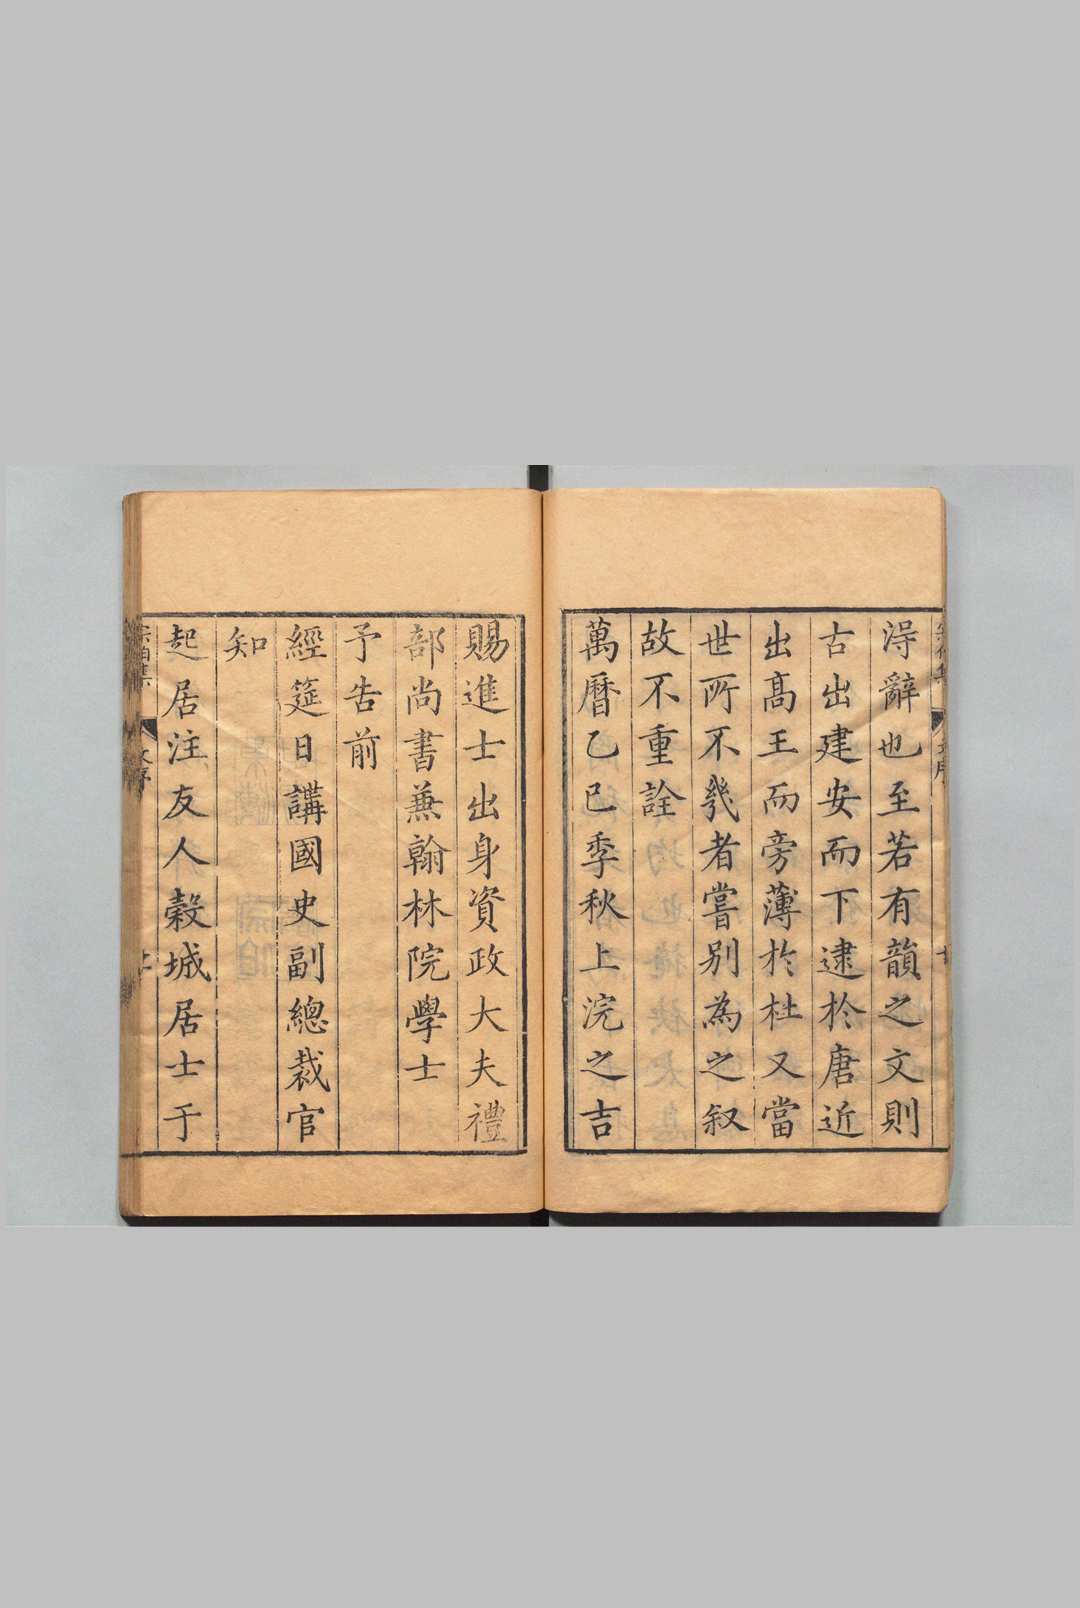 淂辭也至若有韻之文則
古出建安而下逮於唐近
出高王而旁薄於杜又當
世所不㡬者嘗别為之叙
故不重詮
萬曆乙巳季秋上浣之吉
賜進士出身資政大夫禮
部尚書兼翰林院學士
予告前
經筵日講國史副總裁官
知
起居注友人穀城居士于
宗伯集
文序